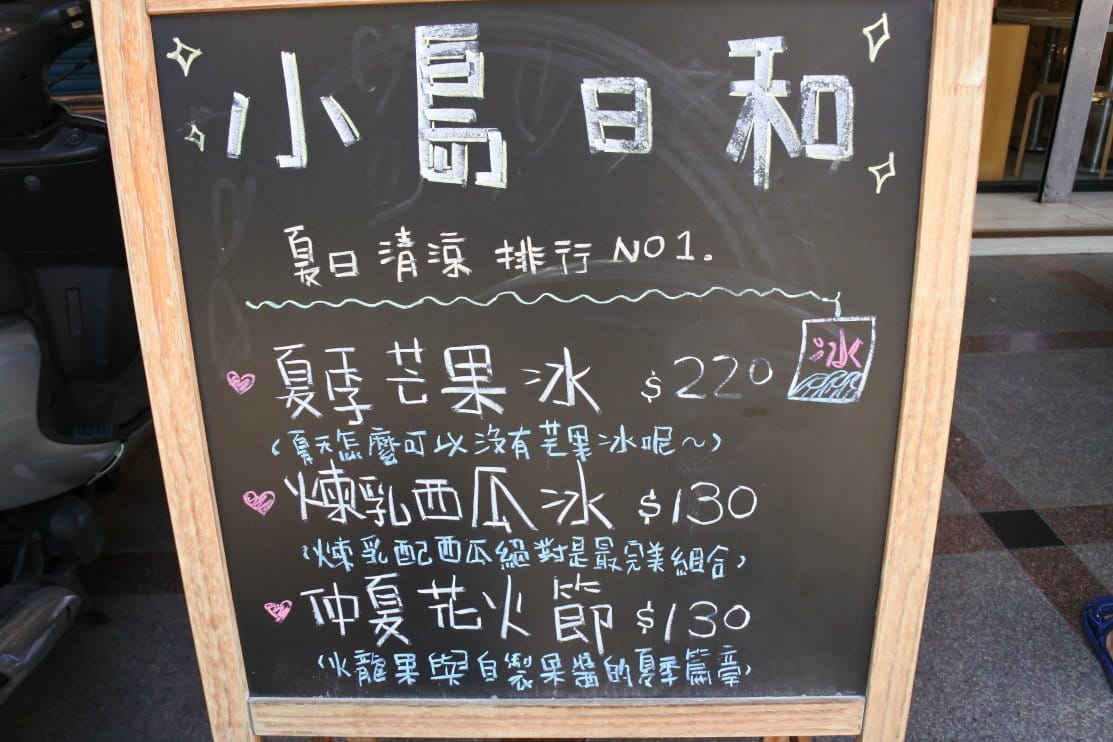 小島日和
夏日清涼 排行 NO1.
冰
夏季芒果冰 $220
(夏天怎麼可以沒有芒果冰呢~)
煉乳西瓜冰 $130
(煉乳配西瓜絕對是最完美組合)
仲夏花火節 $130
(火龍果與自製果醬的夏季篇章)